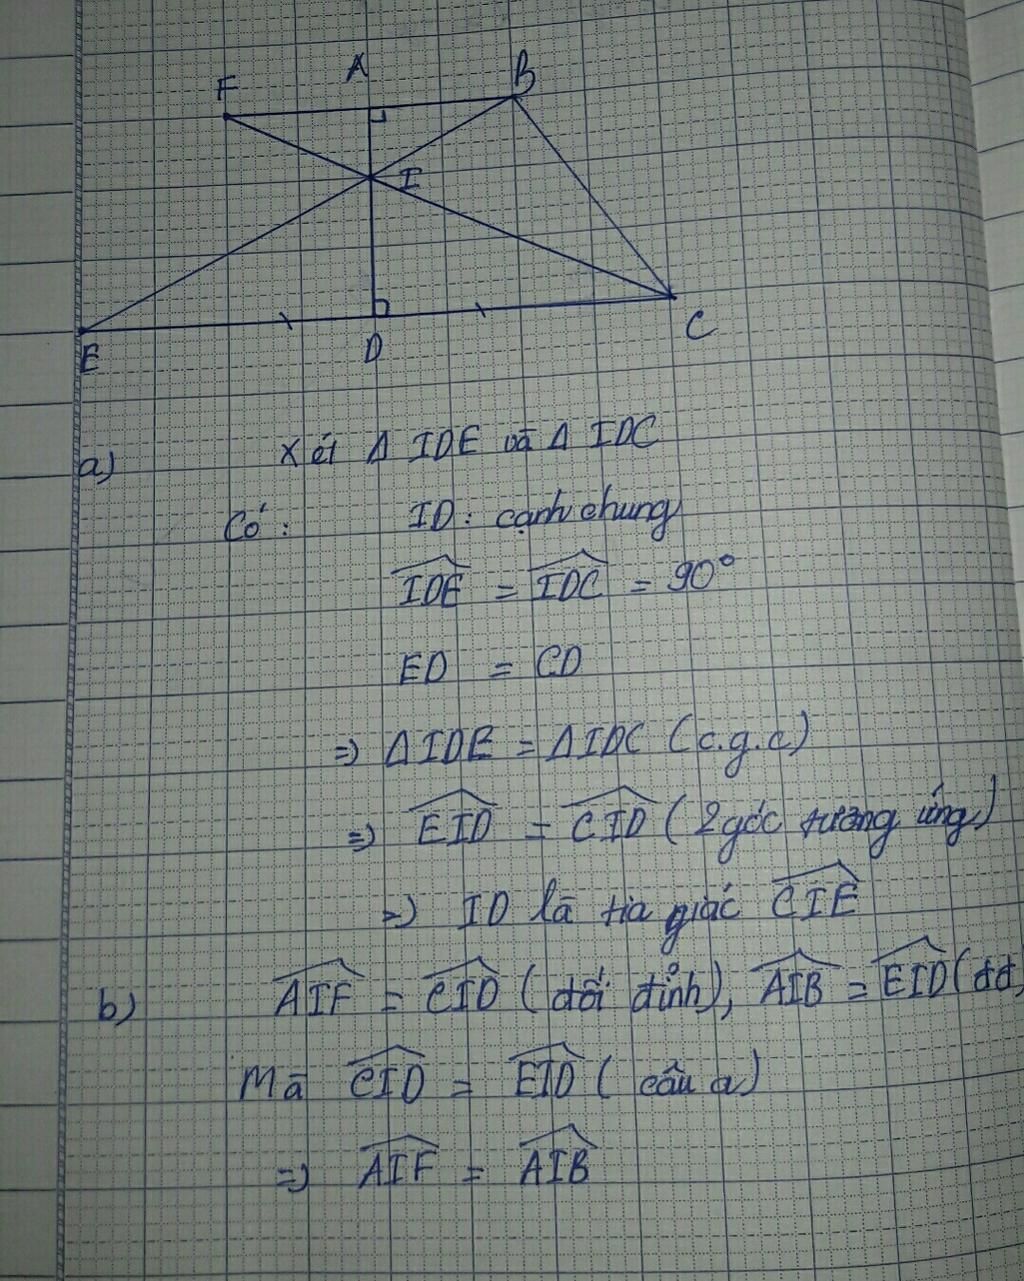 F A B
I
E D C
a) Xét Δ IDE và Δ IDC
Có: ID: cạnh chung
IDE = IDC = 90°
ED = CD
=> ΔIDE = ΔIDC (c.g.c)
=> EID = CID (2 góc tương ứng)
=> ID là tia giác CIE
b) AIF = CID (đối đỉnh), AIB = EID (đđ)
Mà CID = EID (câu a)
=> AIF = AIB